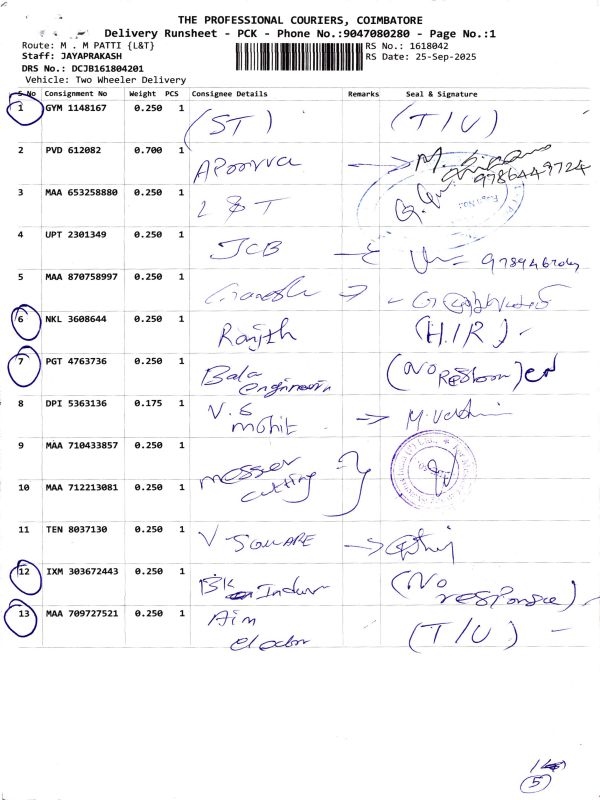 THE PROFESSIONAL COURIERS, COIMBATORE
Delivery Runsheet - PCK - Phone No.:9047080280 - Page No.:1
Route: M . M PATTI {L&T} RS No.: 1618042
Staff: JAYAPRAKASH RS Date: 25-Sep-2025
DRS No.: DCJB161804201
Vehicle: Two Wheeler Delivery
S No Consignment No Weight PCS Consignee Details Remarks Seal & Signature
1 GYM 1148167 0.250 1 (ST) (T/U)
2 PVD 612082 0.700 1 APoorvva → 9786449724
3 MAA 653258880 0.250 1 L & T
4 UPT 2301349 0.250 1 JCB
5 MAA 870758997 0.250 1 Ganesh →
6 NKL 3608644 0.250 1 Ranjith (H.I.R) -
7 PGT 4763736 0.250 1 Bala (No
8 DPI 5363136 0.175 1 V.S mohit →
9 MAA 710433857 0.250 1 messer
10 MAA 712213081 0.250 1 cutting
11 TEN 8037130 0.250 1 V SQUARE →
12 IXM 303672443 0.250 1 BK (No response)
13 MAA 709727521 0.250 1 Aim (T/U) -
5